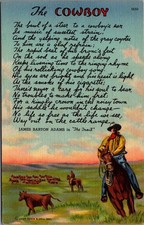 The COWBOY
The bawl of a steer to a cowboy's ear
Is music of sweetest strain;
And the yelping notes of the gray coyote
To him are a glad refrain.
The rapid beat of his broncho's feet
On the sod as he speeds along
Keeps living time to the ringing rhyme
Of his rollicking cowboy's song.
His eyes are bright and his heart is light
As the smoke of his cigarette;
There's never a care for his soul to bear
No troubles to make him fret.
For a kingly crown in the noisy town
His saddle he wouldn't change—
No life so free as the life we see,
Way out on the cattle range.
JAMES BARTON ADAMS in "